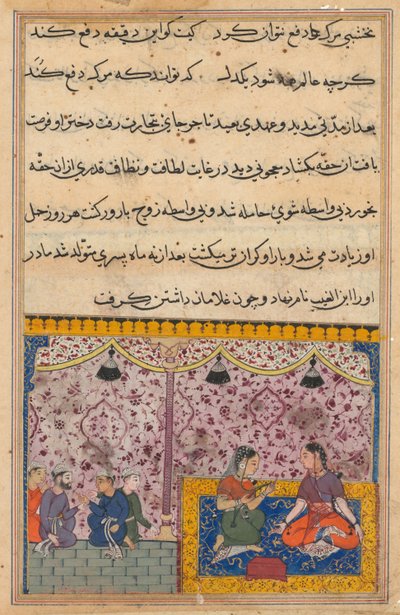 نخشبی مرکه دفع نتوان کرد کیت کو این دقیقه دفع کند
کرچه عالم همه شود یکدل که تواند که مرکه دفع کند
بعد از مدتی مدید و عهدی بعید تاجر جای بتجارت رفت دختر او فرصت
یافت ان حقه بکشاد معجونی دید در غایت لطافت و نظافت قدری از ان حقه
بخورد بی واسطه شوی حامله شد و بی واسطه زوج بارور کشت هر روز حمل
او زیادت می شد و بار او کران تر میکشت بعد از نه ماه پسری متولد شد مادر
او را ابن الغیب نام نهاد و چون غلامان داشتن کرفت